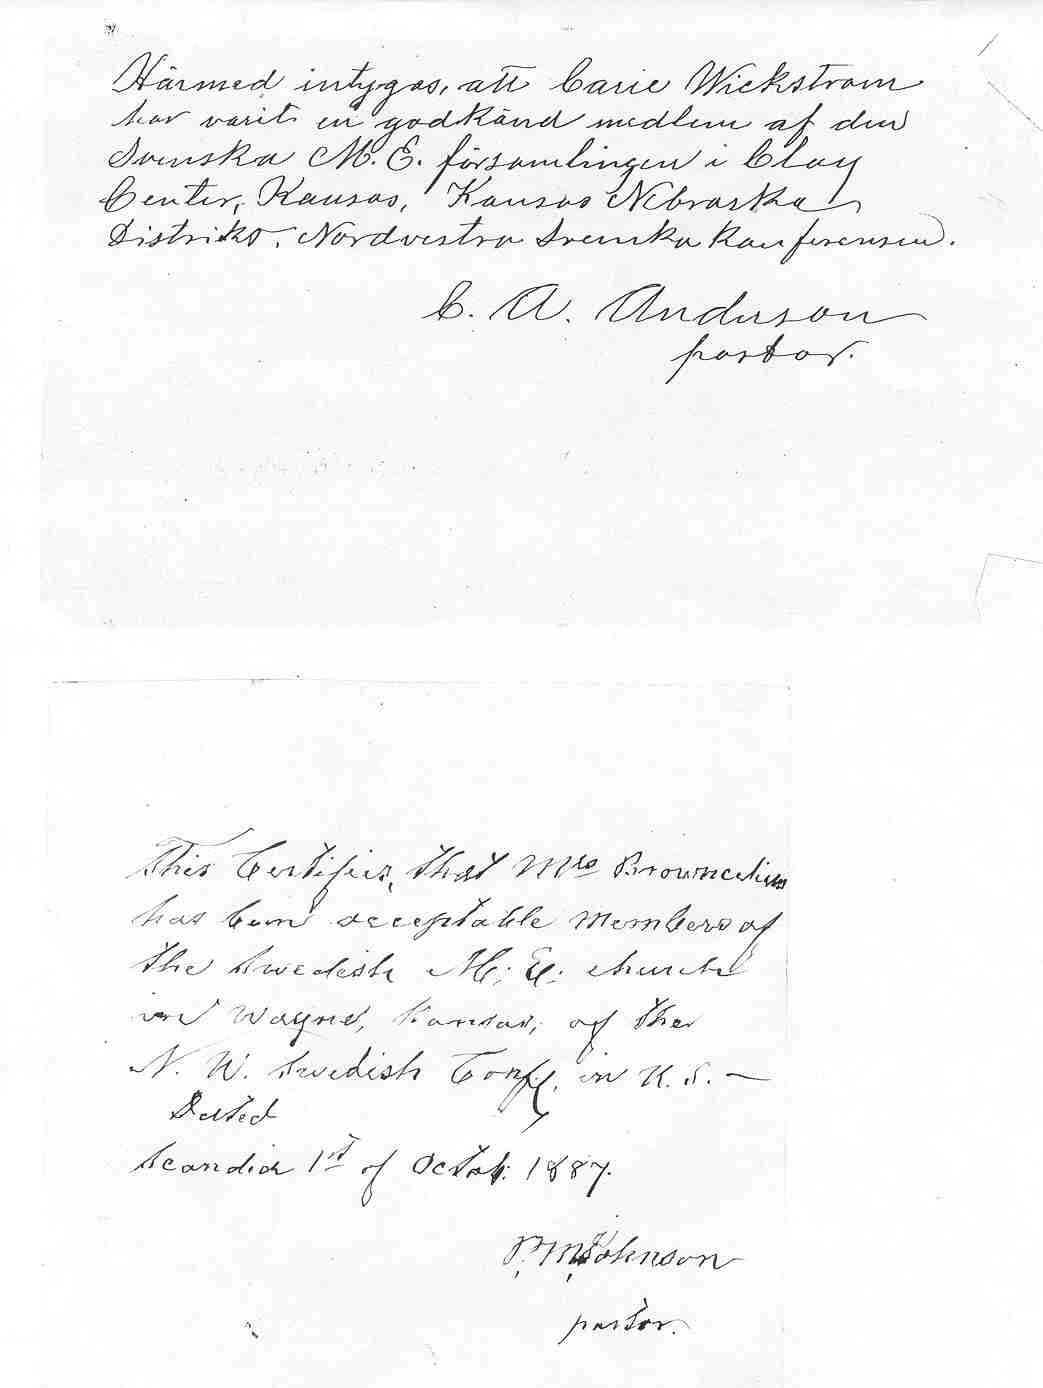 Härmed intygas, att Carie Wickstrom
har varit en godkänd medlem af den
Svenska M. E. församlingen i Clay
Center, Kansas, Kansas Nebraska
Distrikt, Nordvestra Svenska Konferensen.
C. A. Anderson
pastor.
This Certifies, that Mrs
has been acceptable Members of
the Swedish M. E. church
in Wayne, Kansas, of the
N. W. Swedish Conf. in K. S. —
Dated
Scandia 1st of Octob. 1887.
P. M. Johnson
pastor.